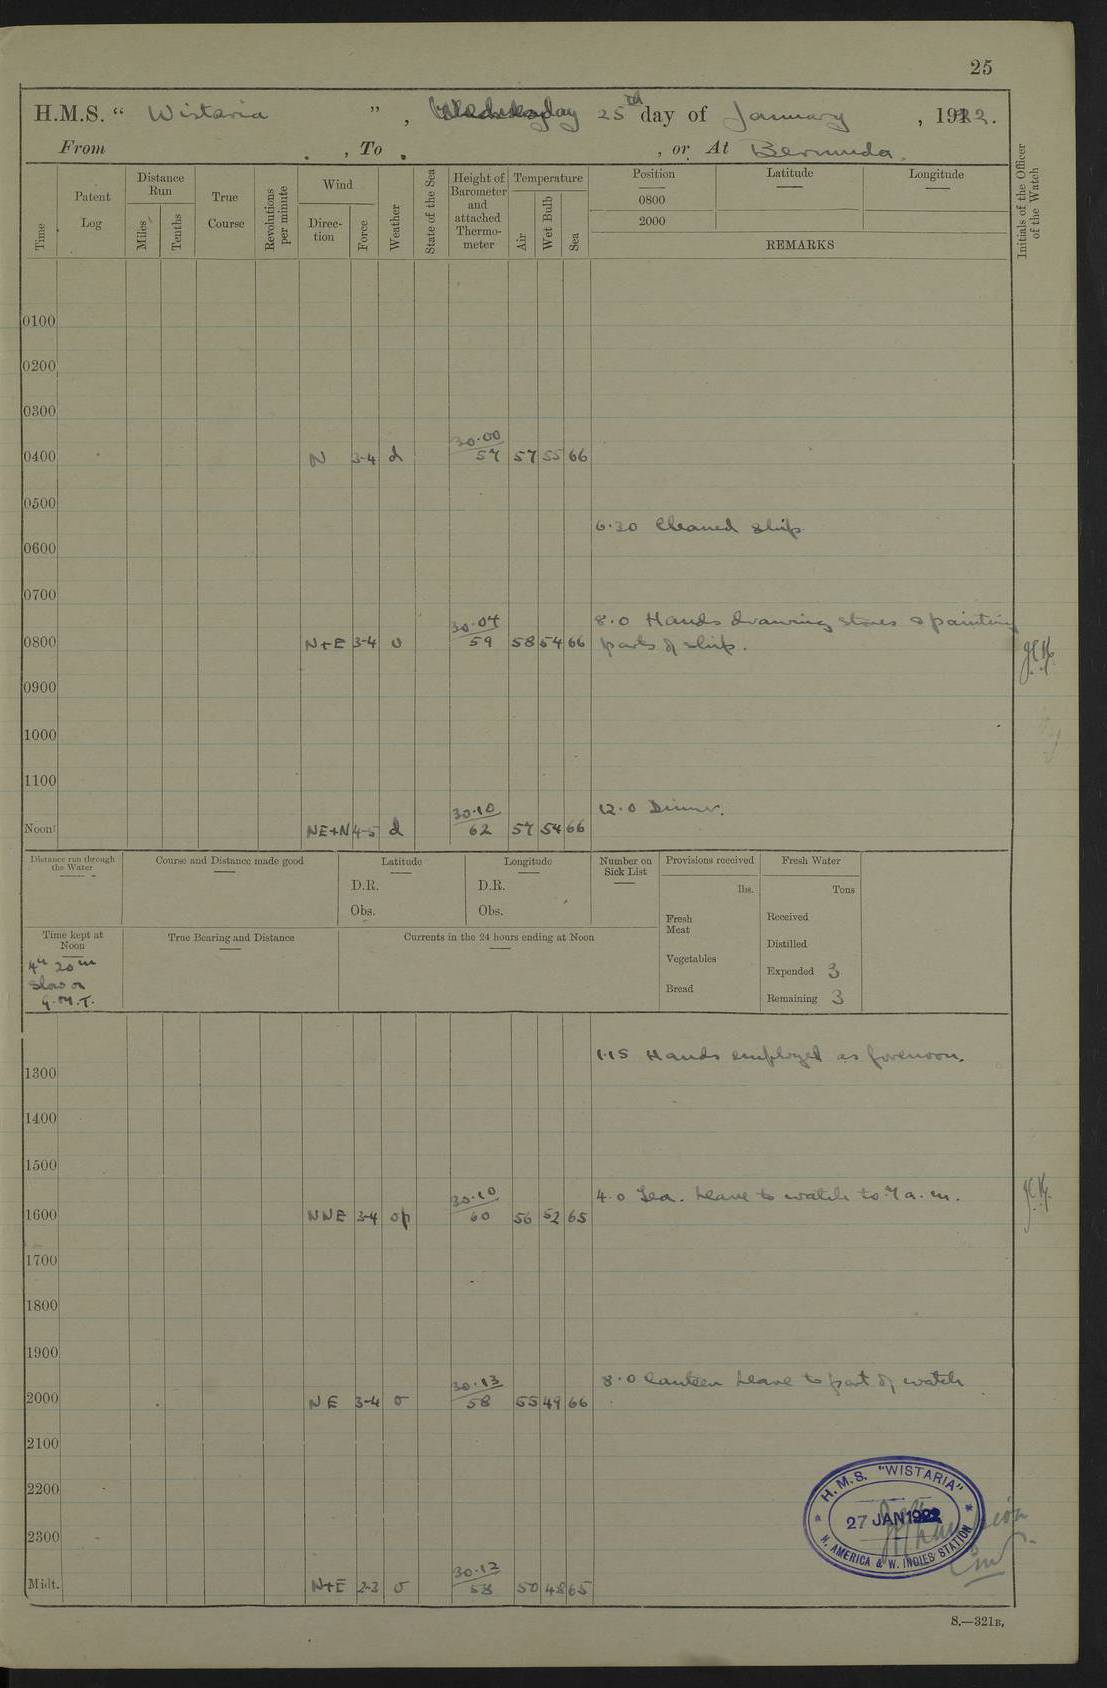 25
H.M.S. “ Wistaria ” , Wednesday 25th day of January , 1922.
From , To , or At Bermuda.
Time
Patent Log
Distance Run
Miles
Tenths
True Course
Revolutions per minute
Wind
Direction
Force
Weather
State of the Sea
Height of Barometer and attached Thermometer
Temperature
Air
Wet Bulb
Sea
Position
0800
2000
Latitude
Longitude
REMARKS
Initials of the Officer of the Watch
0100
0200
0300
30.00
0400 N 3-4 d 57 57 55 66
0500
6.30 Cleaned ship
0600
0700
30.04 8.0 Hands drawing stores & painting
0800 N+E 3-4 o 59 58 54 66 parts of ship.
0900
1000
1100
30.10 12.0 Dinner.
Noon NE+N 4-5 d 62 57 54 66
Distance run through the Water
Course and Distance made good
Latitude
D.R.
Obs.
Longitude
D.R.
Obs.
Number on Sick List
Provisions received
lbs.
Fresh Meat
Vegetables
Bread
Fresh Water
Tons
Received
Distilled
Expended 3
Remaining 3
Time kept at Noon
4h 20m
Slow on
G.M.T.
True Bearing and Distance
Currents in the 24 hours ending at Noon
1.15 Hands employed as forenoon.
1300
1400
1500
30.10 4.0 Tea. Leave to watch to 7 a.m.
1600 NNE 3-4 op 60 56 52 65
1700
1800
1900
30.13 8.0 Canteen Leave to part of watch
2000 NE 3-4 o 58 55 49 66
2100
2200
2300
30.12
Midt. N+E 2-3 o 58 50 48 65
H.M.S. "WISTARIA"
27 JAN 1922
N. AMERICA & W. INDIES STATION
S.—321B.